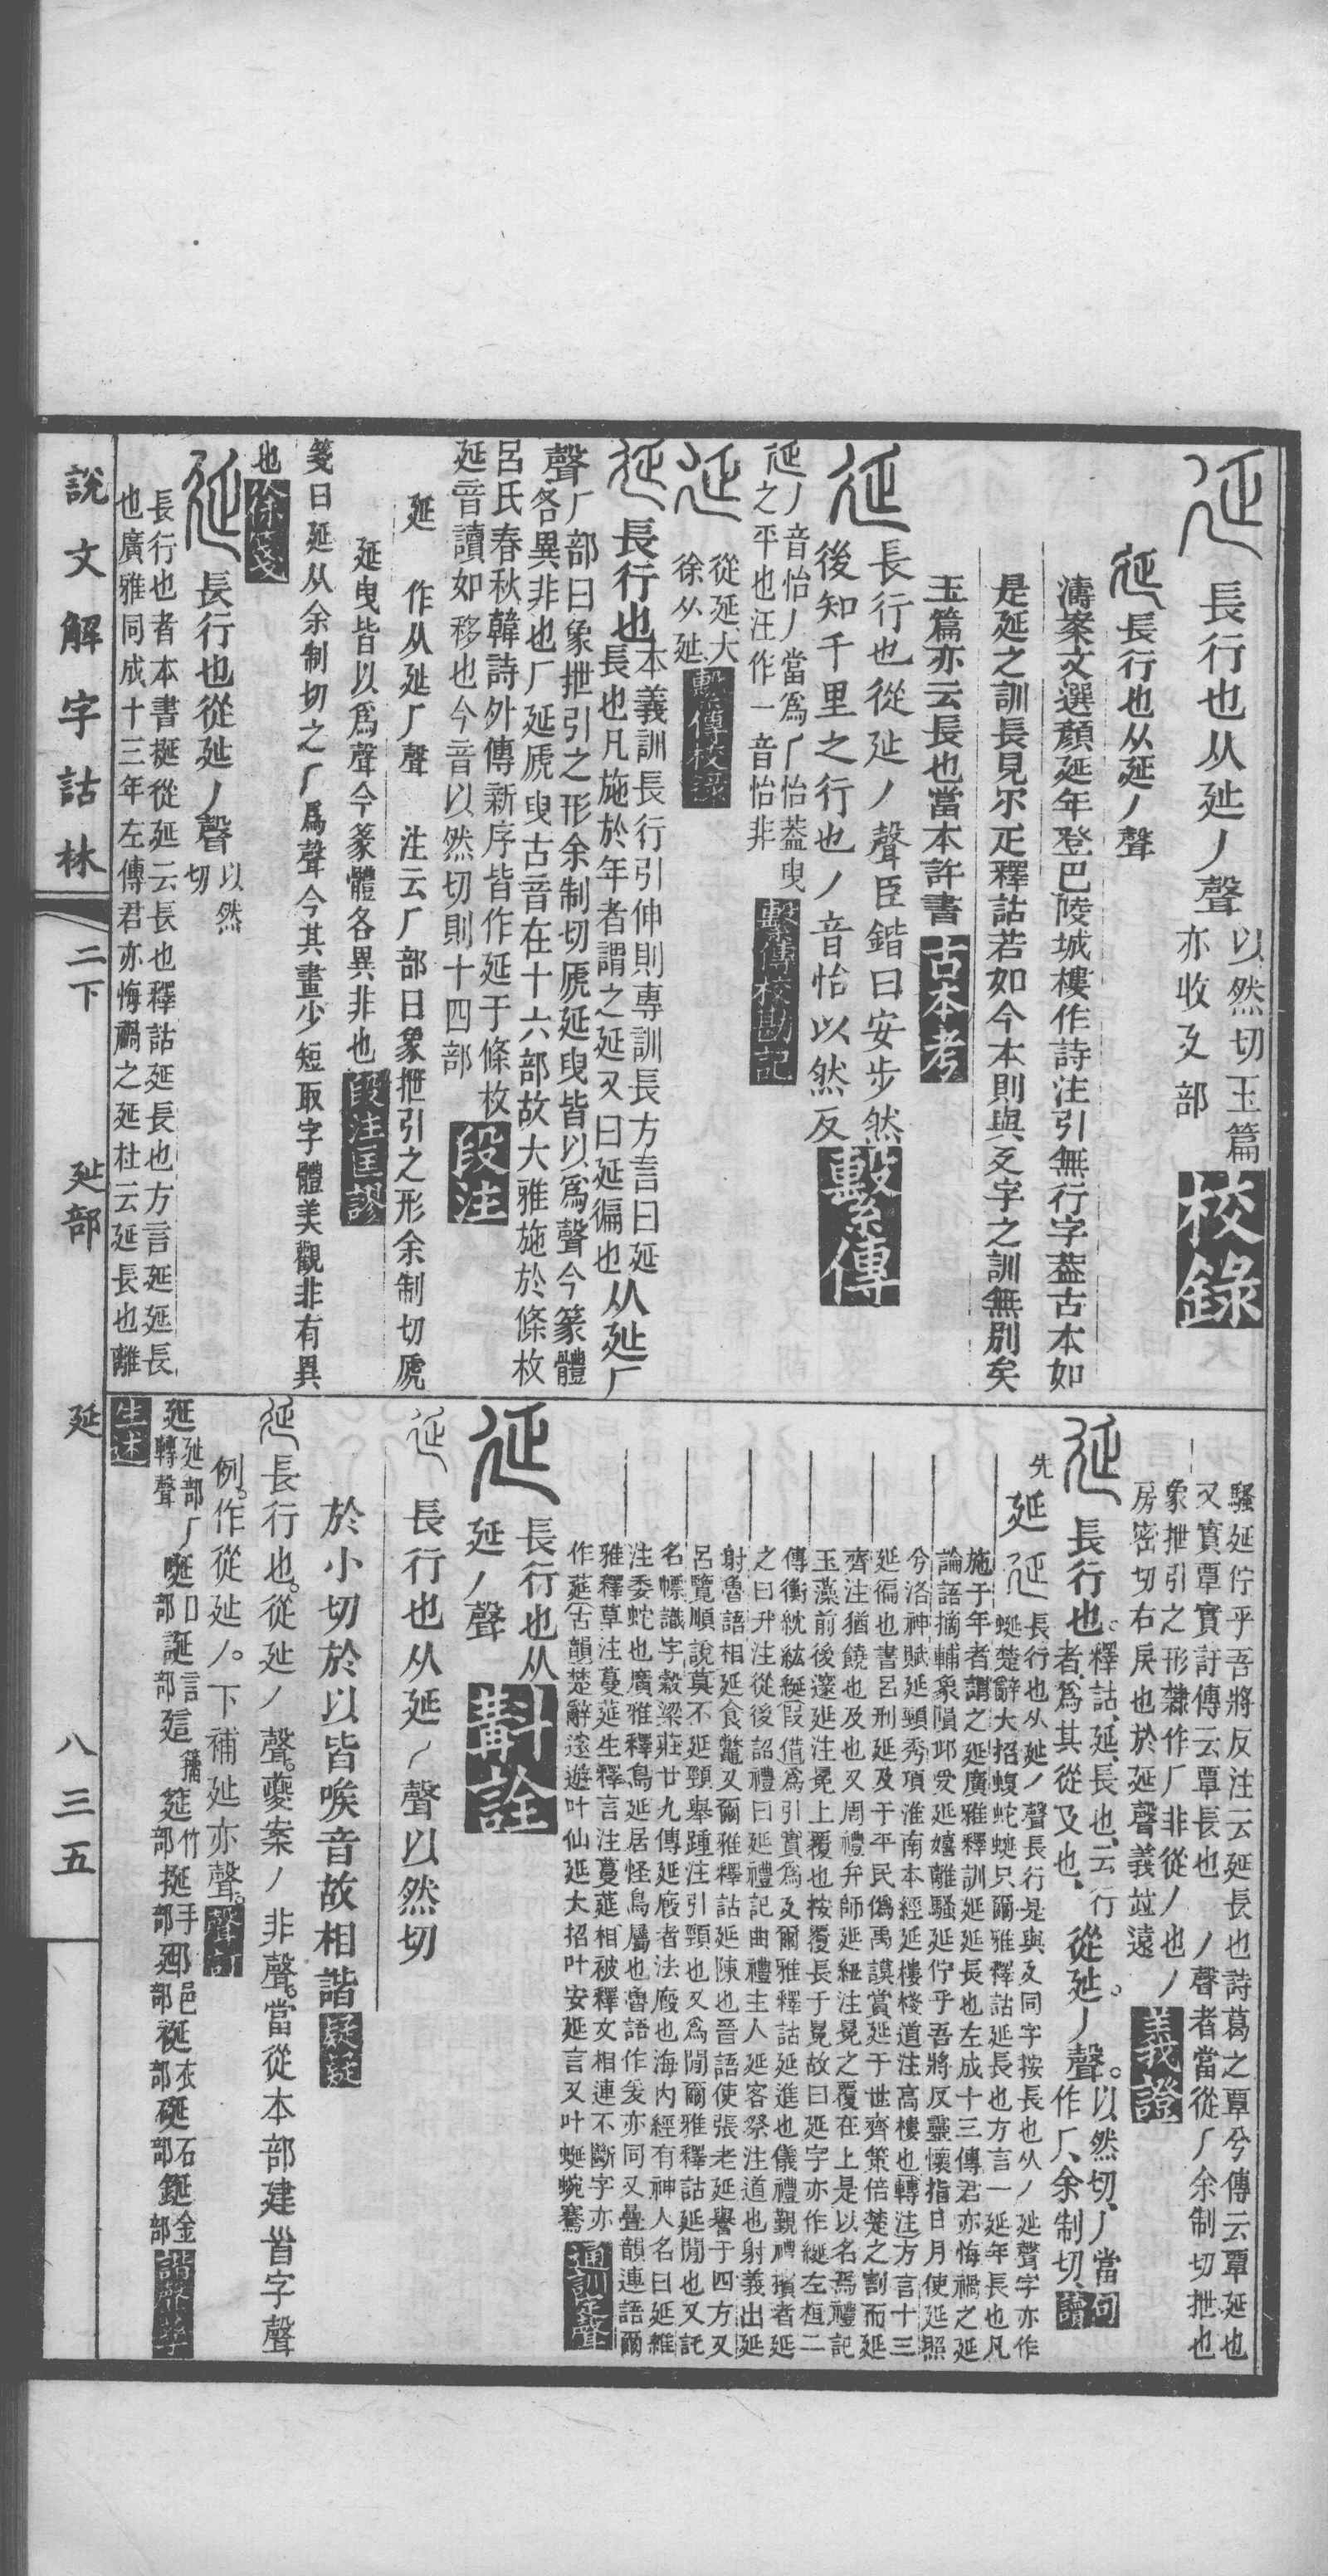 長行也从㢟丿聲 以然切玉篇
亦收廴部 校錄
長行也从㢟丿聲
濤案文選顏延年登巴陵城樓作詩注引無行字葢古本如
是延之訓長見尔疋釋詁若如今本則與廴字之訓無別矣
玉篇亦云長也當本許書 古本考
長行也從㢟丿聲臣鍇曰安步然
後知千里之行也丿音怡以然反 繫傳
延丿音怡丿當爲𠂆怡葢曳
之平也汪作一音怡非 繫傳校勘記
從延大
徐从㢟 繫傳校錄
長行也 本義訓長行引伸則專訓長方言曰延
長也凡施於年者謂之延又曰延徧也 从㢟𠂆
聲 𠂆部曰象抴引之形余制切虒延曳皆以爲聲今篆體
各異非也𠂆延虒曳古音在十六部故大雅施於條枚
呂氏春秋韓詩外傳新序皆作延于條枚
延音讀如移也今音以然切則十四部 段注
延 作从㢟𠂆聲 注云𠂆部曰象抴引之形余制切虒
延曳皆以爲聲今篆體各異非也 段注匡謬
箋曰延从余制切之𠂆爲聲今其畫少短取字體美觀非有異
也 徐箋
長行也從㢟丿聲 以然
切
長行也者本書挻從延云長也釋詁延長也方言延延長
也廣雅同成十三年左傳君亦悔禍之延杜云延長也離
騷延佇乎吾將反注云延長也詩葛之覃兮傳云覃延也
又實覃實訏傳云覃長也 丿聲者當從𠂆余制切抴也
象抴引之形隸作𠂆非從丿也丿
房密切右戾也於延聲義竝遠 義證
長行也 釋詁延長也云行
者爲其從廴也 從㢟丿聲 以然切丿當
作𠂆余制切 句讀
先 延
長行也从㢟丿聲長行是與廴同字按長也从丿㢟聲字亦作
蜒楚辭大招蝮蛇蜒只爾雅釋詁延長也方言一延年長也凡
施于年者謂之延廣雅釋訓延延長也左成十三傳君亦悔禍之延
論語摘輔象隕邱受延嬉離騷延佇乎吾將反靈懷指日月使延照
兮洛神賦延頸秀項淮南本經延樓棧道注高樓也轉注方言十三
延徧也書呂刑延及于平民僞禹謨賞延于世齊策倍楚之割而延
齊注猶饒也及也又周禮弁師延紐注冕之覆在上是以名焉禮記
玉藻前後邃延注冕上覆也按覆長于冕故曰延字亦作綖左桓二
傳衡紞紘綖叚借爲引實爲廴爾雅釋詁延進也儀禮覲禮擯者延
之曰升注從後詔禮曰延禮記曲禮主人延客祭注道也射義出延
射魯語相延食鼈又爾雅釋詁延陳也晉語使張老延譽于四方又
呂覽順說莫不延頸舉踵注引頸也又爲閒爾雅釋詁延閒也又託
名幖識字穀梁莊廿九傳延廄者法廄也海內經有神人名曰延維
注委蛇也廣雅釋鳥延居怪鳥屬也魯語作爰亦同又疊韻連語爾
雅釋草注蔓延生釋言注蔓莚相被釋文相連不斷字亦
作莚古韻楚辭遠遊叶仙延大招叶安延言又叶蜒蜿騫 通訓定聲
長行也从
㢟丿聲 斠詮
長行也从㢟丿聲以然切
於小切於以皆喉音故相諧 疑疑
長行也從㢟丿聲夔案丿非聲當從本部建首字聲
例作從㢟丿下補㢟亦聲 聲訂
延 㢟部𠂆
轉聲 唌 口
部 誕 言
部 𨒂 籀 筵 竹
部 挻 手
部 郔 邑
部 裞 衣
部 硟 石
部 鋋 金
部 諧聲孳
生述
說文解字詁林 二下 㢟部 延 八三五